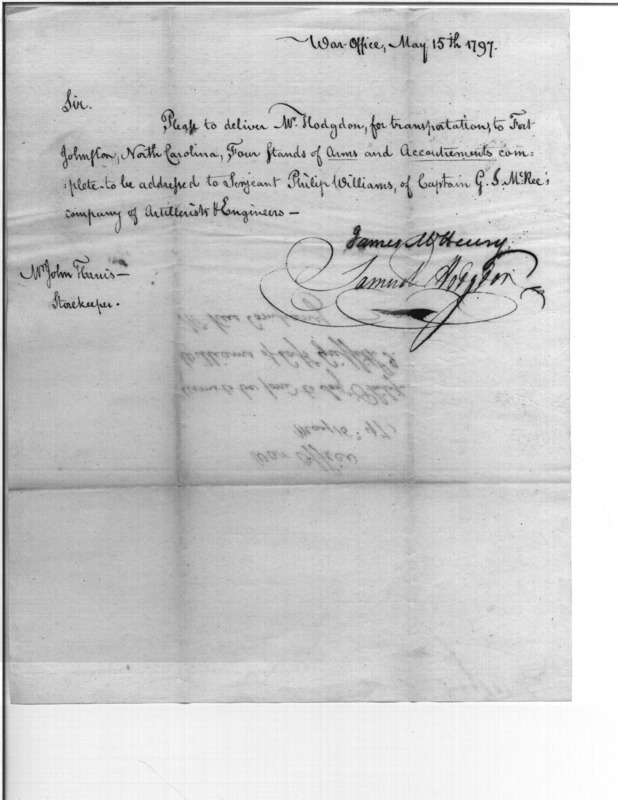 War-Office, May 15th 1797.
Sir.
Please to deliver Mr. Hodgdon, for transportation, to Fort
Johnston, North Carolina, Four Stands of Arms and Accoutrements com=
=plete - to be addressed to Serjeant Philip Williams, of Captain G. I. McRee's
company of Artillerists & Engineers —
James McHenry.
Samuel Hodgdon
Mr John Harris —
Storekeeper.
McRee Company
Williams of Capt Griffith
to Philip
May 15th 97
War Office